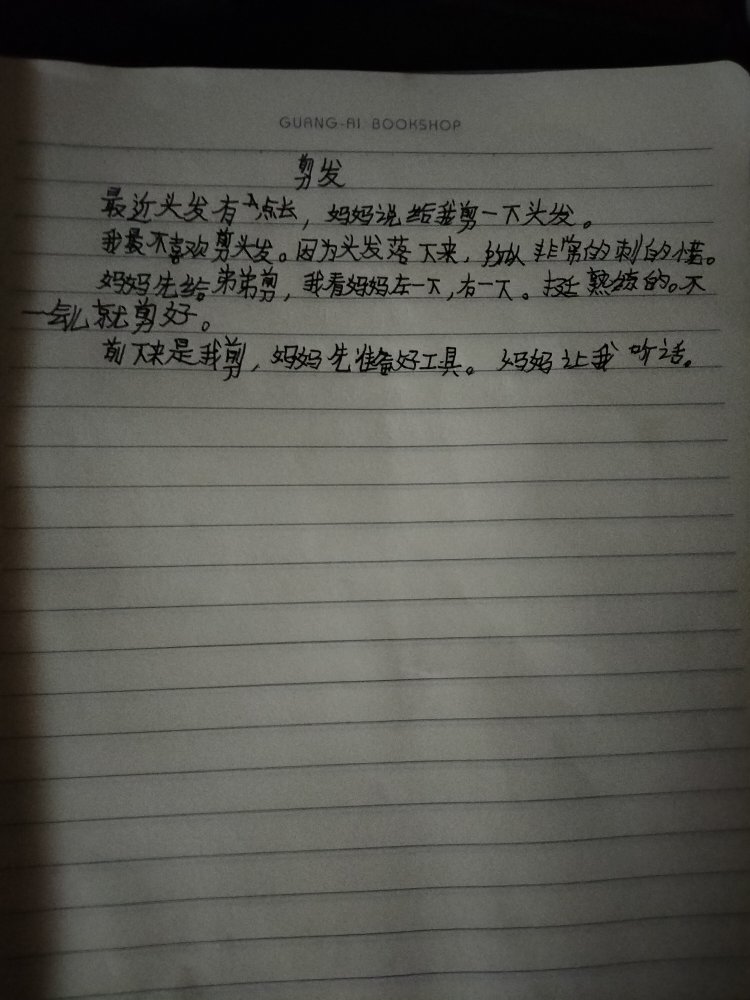 GUANG-AI BOOKSHOP
剪发
最近头发有点长，妈妈说给我剪一下头发。
我最不喜欢剪头发。因为头发落下来，非常的刺的
妈妈先给弟弟剪，我看妈妈左一下，右一下。挺熟练的。不
一会儿就剪好。
下来是我剪，妈妈先准备好工具。妈妈让我听话。